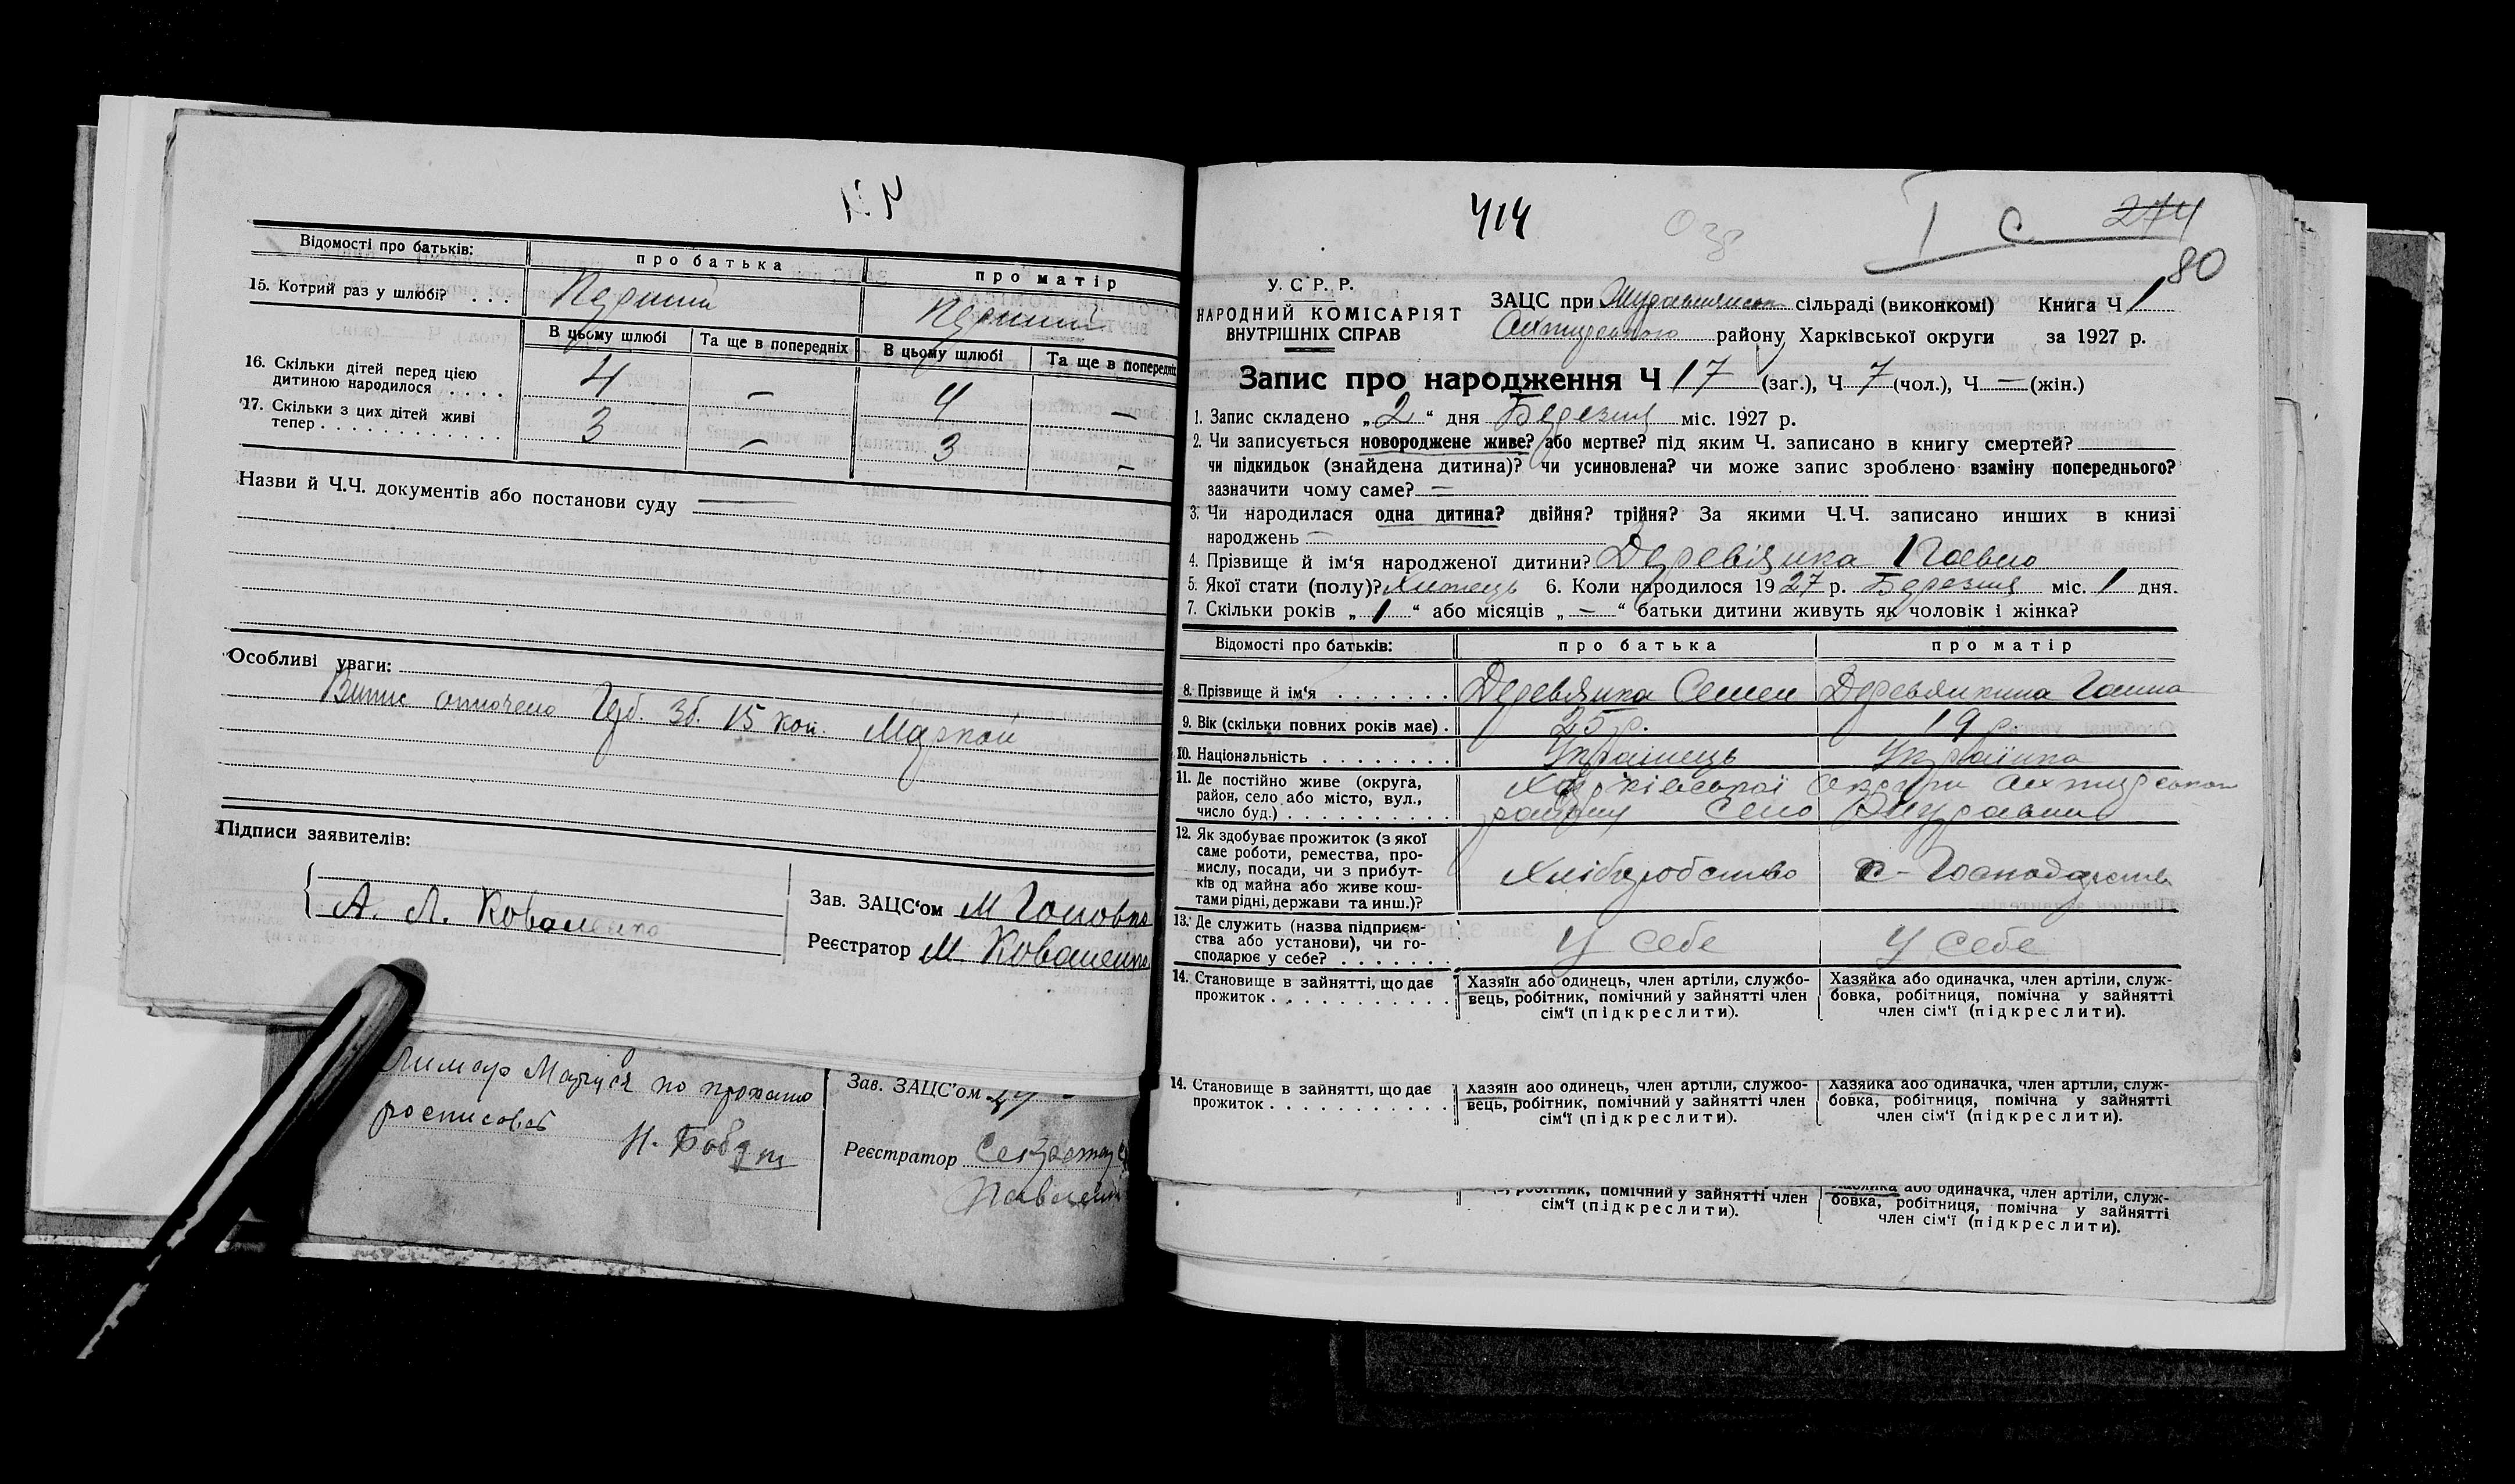 Відомості про батьків: про батька про матір
15. Котрий раз у шлюбі? . . . Перший Перший
В цьому шлюбі Та ще в попередніх В цьому шлюбі Та ще в попередніх
16. Скільки дітей перед цією
дитиною народилося . . . . 4 — 4 —
17. Скільки з цих дітей живі
тепер . . . . . . . . . . . . 3 — 3 —
Назви й Ч.Ч. документів або постанови суду —
Особливі уваги:
Витяг оплочено Герб. Зб. 15 коп. Маркой
Підписи заявителів:
А. Л. Коваленко
Зав. ЗАЦС'ом М Головко
Реєстратор М. Коваленко
по прохани
росписався
Н. Бабич
Зав. ЗАЦС'ом
Реєстратор Секретарь
414
I С 274
80
У. С Р. Р.
НАРОДНИЙ КОМІСАРІЯТ
ВНУТРІШНІХ СПРАВ
ЗАЦС при сільраді (виконкомі) Книга Ч 1
району Харківської округи за 1927 р.
Запис про народження Ч 17 (заг.), Ч 7 (чол.), Ч — (жін.)
1. Запис складено „2“ дня Березня міс. 1927 р.
2. Чи записується новороджене живе? або мертве? під яким Ч. записано в книгу смертей?
чи підкидьок (знайдена дитина)? чи усиновлена? чи може запис зроблено взаміну попереднього?
зазначити чому саме? —
3. Чи народилася одна дитина? двійня? трійня? За якими Ч.Ч. записано инших в книзі
народжень —
4. Прізвище й ім'я народженої дитини? Деревянка Павло
5. Якої стати (полу)? Хлопець 6. Коли народилося 1927 р. Березня міс. 1 дня.
7. Скільки років „1“ або місяців „—“ батьки дитини живуть як чоловік і жінка?
Відомості про батьків: про батька про матір
8. Прізвище й ім'я . . . . . . . Деревянка Семен Деревянкина Ганна
9. Вік (скільки повних років має) . 25 р. 19 р.
10. Національність . . . . . . . . Українець Українка
11. Де постійно живе (округа, Харківської Округи
район, село або місто, вул., району Село
число буд.) . . . . . . . . . . .
12. Як здобуває прожиток (з якої
саме роботи, ремества, про-
мислу, посади, чи з прибут- Хліборобство с-Господарство
ків од майна або живе кош-
тами рідні, держави та инш.)?
13. Де служить (назва підприєм-
ства або установи), чи го- У себе У себе
сподарює у себе? . . . . . . .
14. Становище в зайнятті, що дає Хазяїн або одинець, член артіли, службо- Хазяйка або одиначка, член артіли, служ-
прожиток . . . . . . . . . . . . вець, робітник, помічний у зайнятті член бовка, робітниця, помічна у зайнятті
сім'ї (підкреслити). член сім'ї (підкреслити).
14. Становище в зайнятті, що дає Хазяїн або одинець, член артіли, службо- Хазяйка або одиначка, член артіли, служ-
прожиток . . . . . . . . . . . . вець, робітник, помічний у зайнятті член бовка, робітниця, помічна у зайнятті
сім'ї (підкреслити). член сім'ї (підкреслити).
робітник, помічний у зайнятті член або одиначка, член артіли, служ-
сім'ї (підкреслити). бовка, робітниця, помічна у зайнятті
член сім'ї (підкреслити).